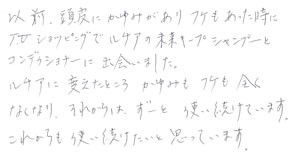 以前、頭皮にかゆみがありフケもあった時に
TVショッピングでルケアの未来キープシャンプーと
コンディショナーに出会いました。
ルケアに変えたところ かゆみもフケも全く
なくなり、それからは、ずーと使い続けています。
これからも使い続けたいと思っています。